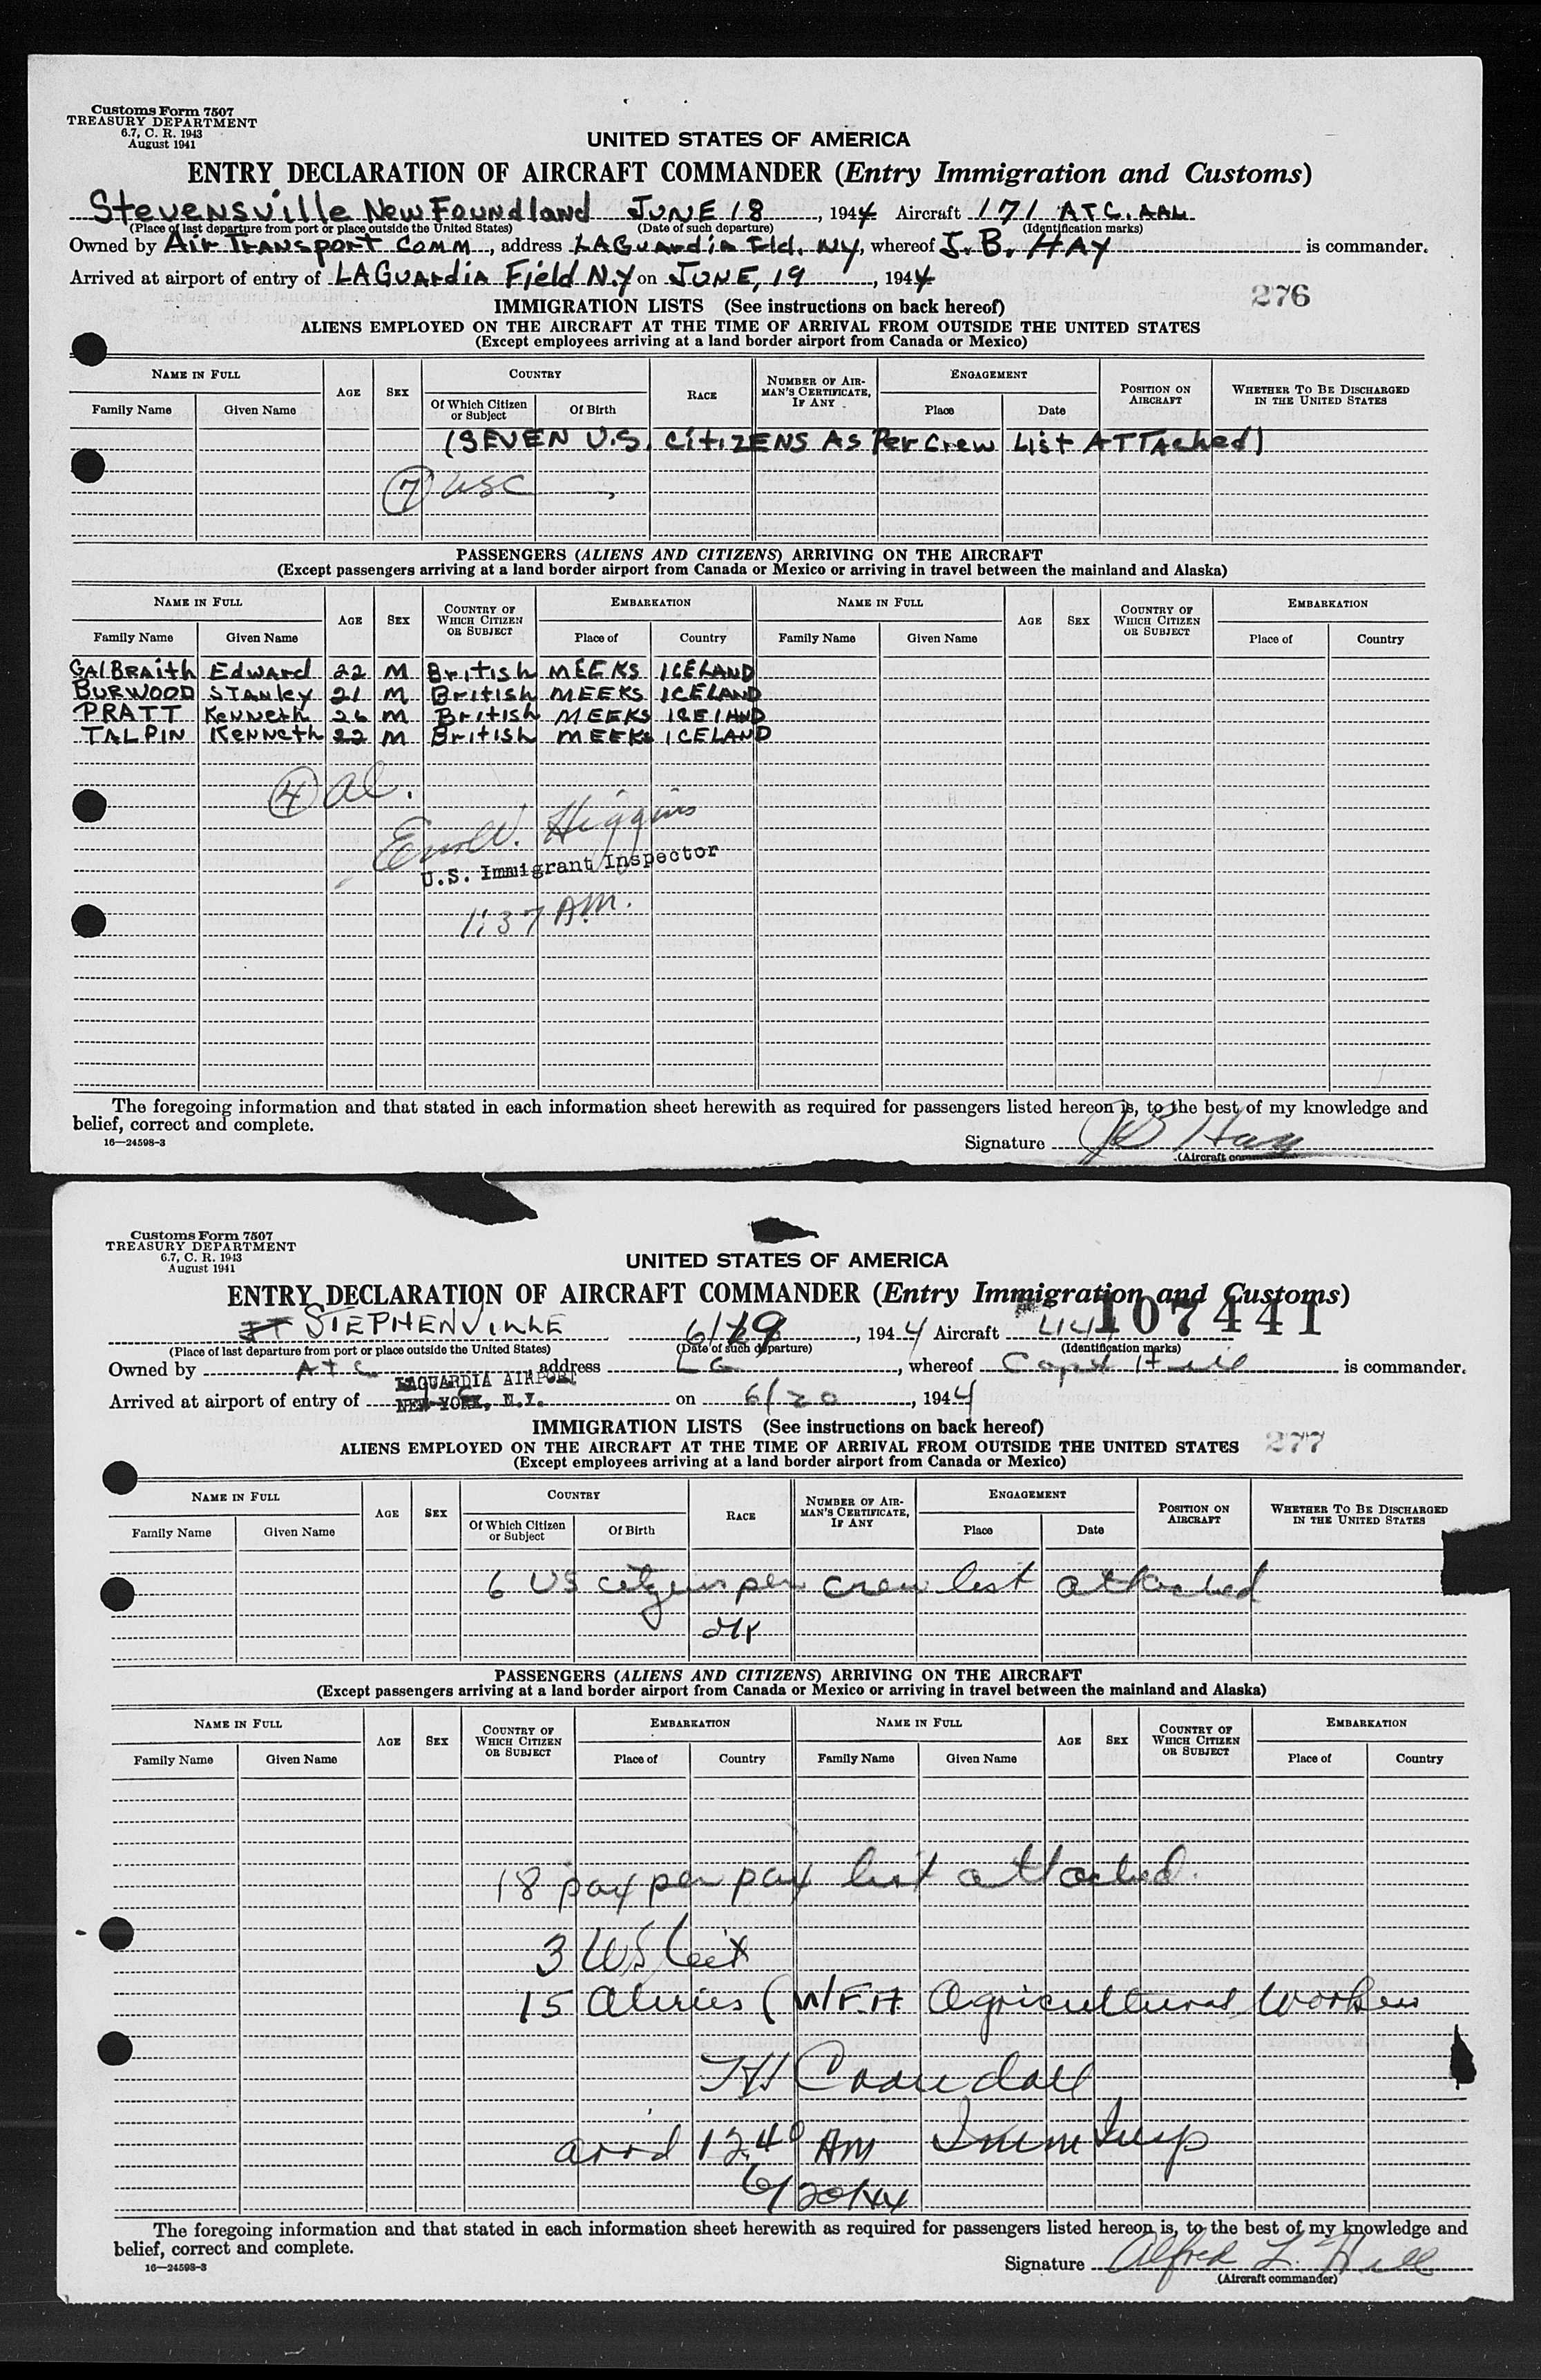 Customs Form 7507
TREASURY DEPARTMENT
6.7, C. R. 1943
August 1941
UNITED STATES OF AMERICA
ENTRY DECLARATION OF AIRCRAFT COMMANDER (Entry Immigration and Customs)
Stevensville NewFoundland JUNE 18, 1944 Aircraft 171 ATC. AAL
(Place of last departure from port or place outside the United States) (Date of such departure) (Identification marks)
Owned by Air TRANSport Comm, address LAGuardia Fld. NY, whereof J. B. HAY is commander.
Arrived at airport of entry of LAGUArdia Field N.Y on JUNE, 19, 1944
276
IMMIGRATION LISTS (See instructions on back hereof)
ALIENS EMPLOYED ON THE AIRCRAFT AT THE TIME OF ARRIVAL FROM OUTSIDE THE UNITED STATES
(Except employees arriving at a land border airport from Canada or Mexico)
NAME IN FULL AGE SEX COUNTRY RACE NUMBER OF AIRMAN'S CERTIFICATE, IF ANY ENGAGEMENT POSITION ON AIRCRAFT WHETHER TO BE DISCHARGED IN THE UNITED STATES
Family Name Given Name Of Which Citizen or Subject Of Birth Place Date
(SEVEN U.S. CitizENS AS Per Crew List ATTAched)
7 USC
PASSENGERS (ALIENS AND CITIZENS) ARRIVING ON THE AIRCRAFT
(Except passengers arriving at a land border airport from Canada or Mexico or arriving in travel between the mainland and Alaska)
NAME IN FULL AGE SEX COUNTRY OF WHICH CITIZEN OR SUBJECT EMBARKATION NAME IN FULL AGE SEX COUNTRY OF WHICH CITIZEN OR SUBJECT EMBARKATION
Family Name Given Name Place of Country Family Name Given Name Place of Country
GALBRAith Edward 22 M British MEEKS ICELAND
BURWOOD STANley 21 M British MEEKS ICELAND
PRATT KeNNeth 26 M British MEEKS ICElAND
TALPIN KeNNeth 22 M British MEEKs ICELAND
4 al.
Higgins
U.S. Immigrant Inspector
1:37 A.M.
The foregoing information and that stated in each information sheet herewith as required for passengers listed hereon is, to the best of my knowledge and
belief, correct and complete.
16—24598-3
Signature JB Hay
(Aircraft
Customs Form 7507
TREASURY DEPARTMENT
6.7, C. R. 1943
August 1941
UNITED STATES OF AMERICA
ENTRY DECLARATION OF AIRCRAFT COMMANDER (Entry Immigration and Customs)
107441
STEPHENVILLE 6/19, 1944 Aircraft
(Place of last departure from port or place outside the United States) (Date of such departure) (Identification marks)
Owned by ATC, address LG, whereof Capt Hill is commander.
Arrived at airport of entry of LAGUARDIA AIRPORT NEW YORK, N.Y. on 6/20, 1944
IMMIGRATION LISTS (See instructions on back hereof)
ALIENS EMPLOYED ON THE AIRCRAFT AT THE TIME OF ARRIVAL FROM OUTSIDE THE UNITED STATES 277
(Except employees arriving at a land border airport from Canada or Mexico)
NAME IN FULL AGE SEX COUNTRY RACE NUMBER OF AIRMAN'S CERTIFICATE, IF ANY ENGAGEMENT POSITION ON AIRCRAFT WHETHER TO BE DISCHARGED IN THE UNITED STATES
Family Name Given Name Of Which Citizen or Subject Of Birth Place Date
6 US citizens per crew list attached
PASSENGERS (ALIENS AND CITIZENS) ARRIVING ON THE AIRCRAFT
(Except passengers arriving at a land border airport from Canada or Mexico or arriving in travel between the mainland and Alaska)
NAME IN FULL AGE SEX COUNTRY OF WHICH CITIZEN OR SUBJECT EMBARKATION NAME IN FULL AGE SEX COUNTRY OF WHICH CITIZEN OR SUBJECT EMBARKATION
Family Name Given Name Place of Country Family Name Given Name Place of Country
18 pax per pax list attached.
3 US Cit
15 Aliens (WFA Agricultural Workers
Crandall
arrd 12 40 AM Imm Insp
6/20/44
The foregoing information and that stated in each information sheet herewith as required for passengers listed hereon is, to the best of my knowledge and
belief, correct and complete.
16—24598-3
Signature Alfred L. Hill
(Aircraft commander)